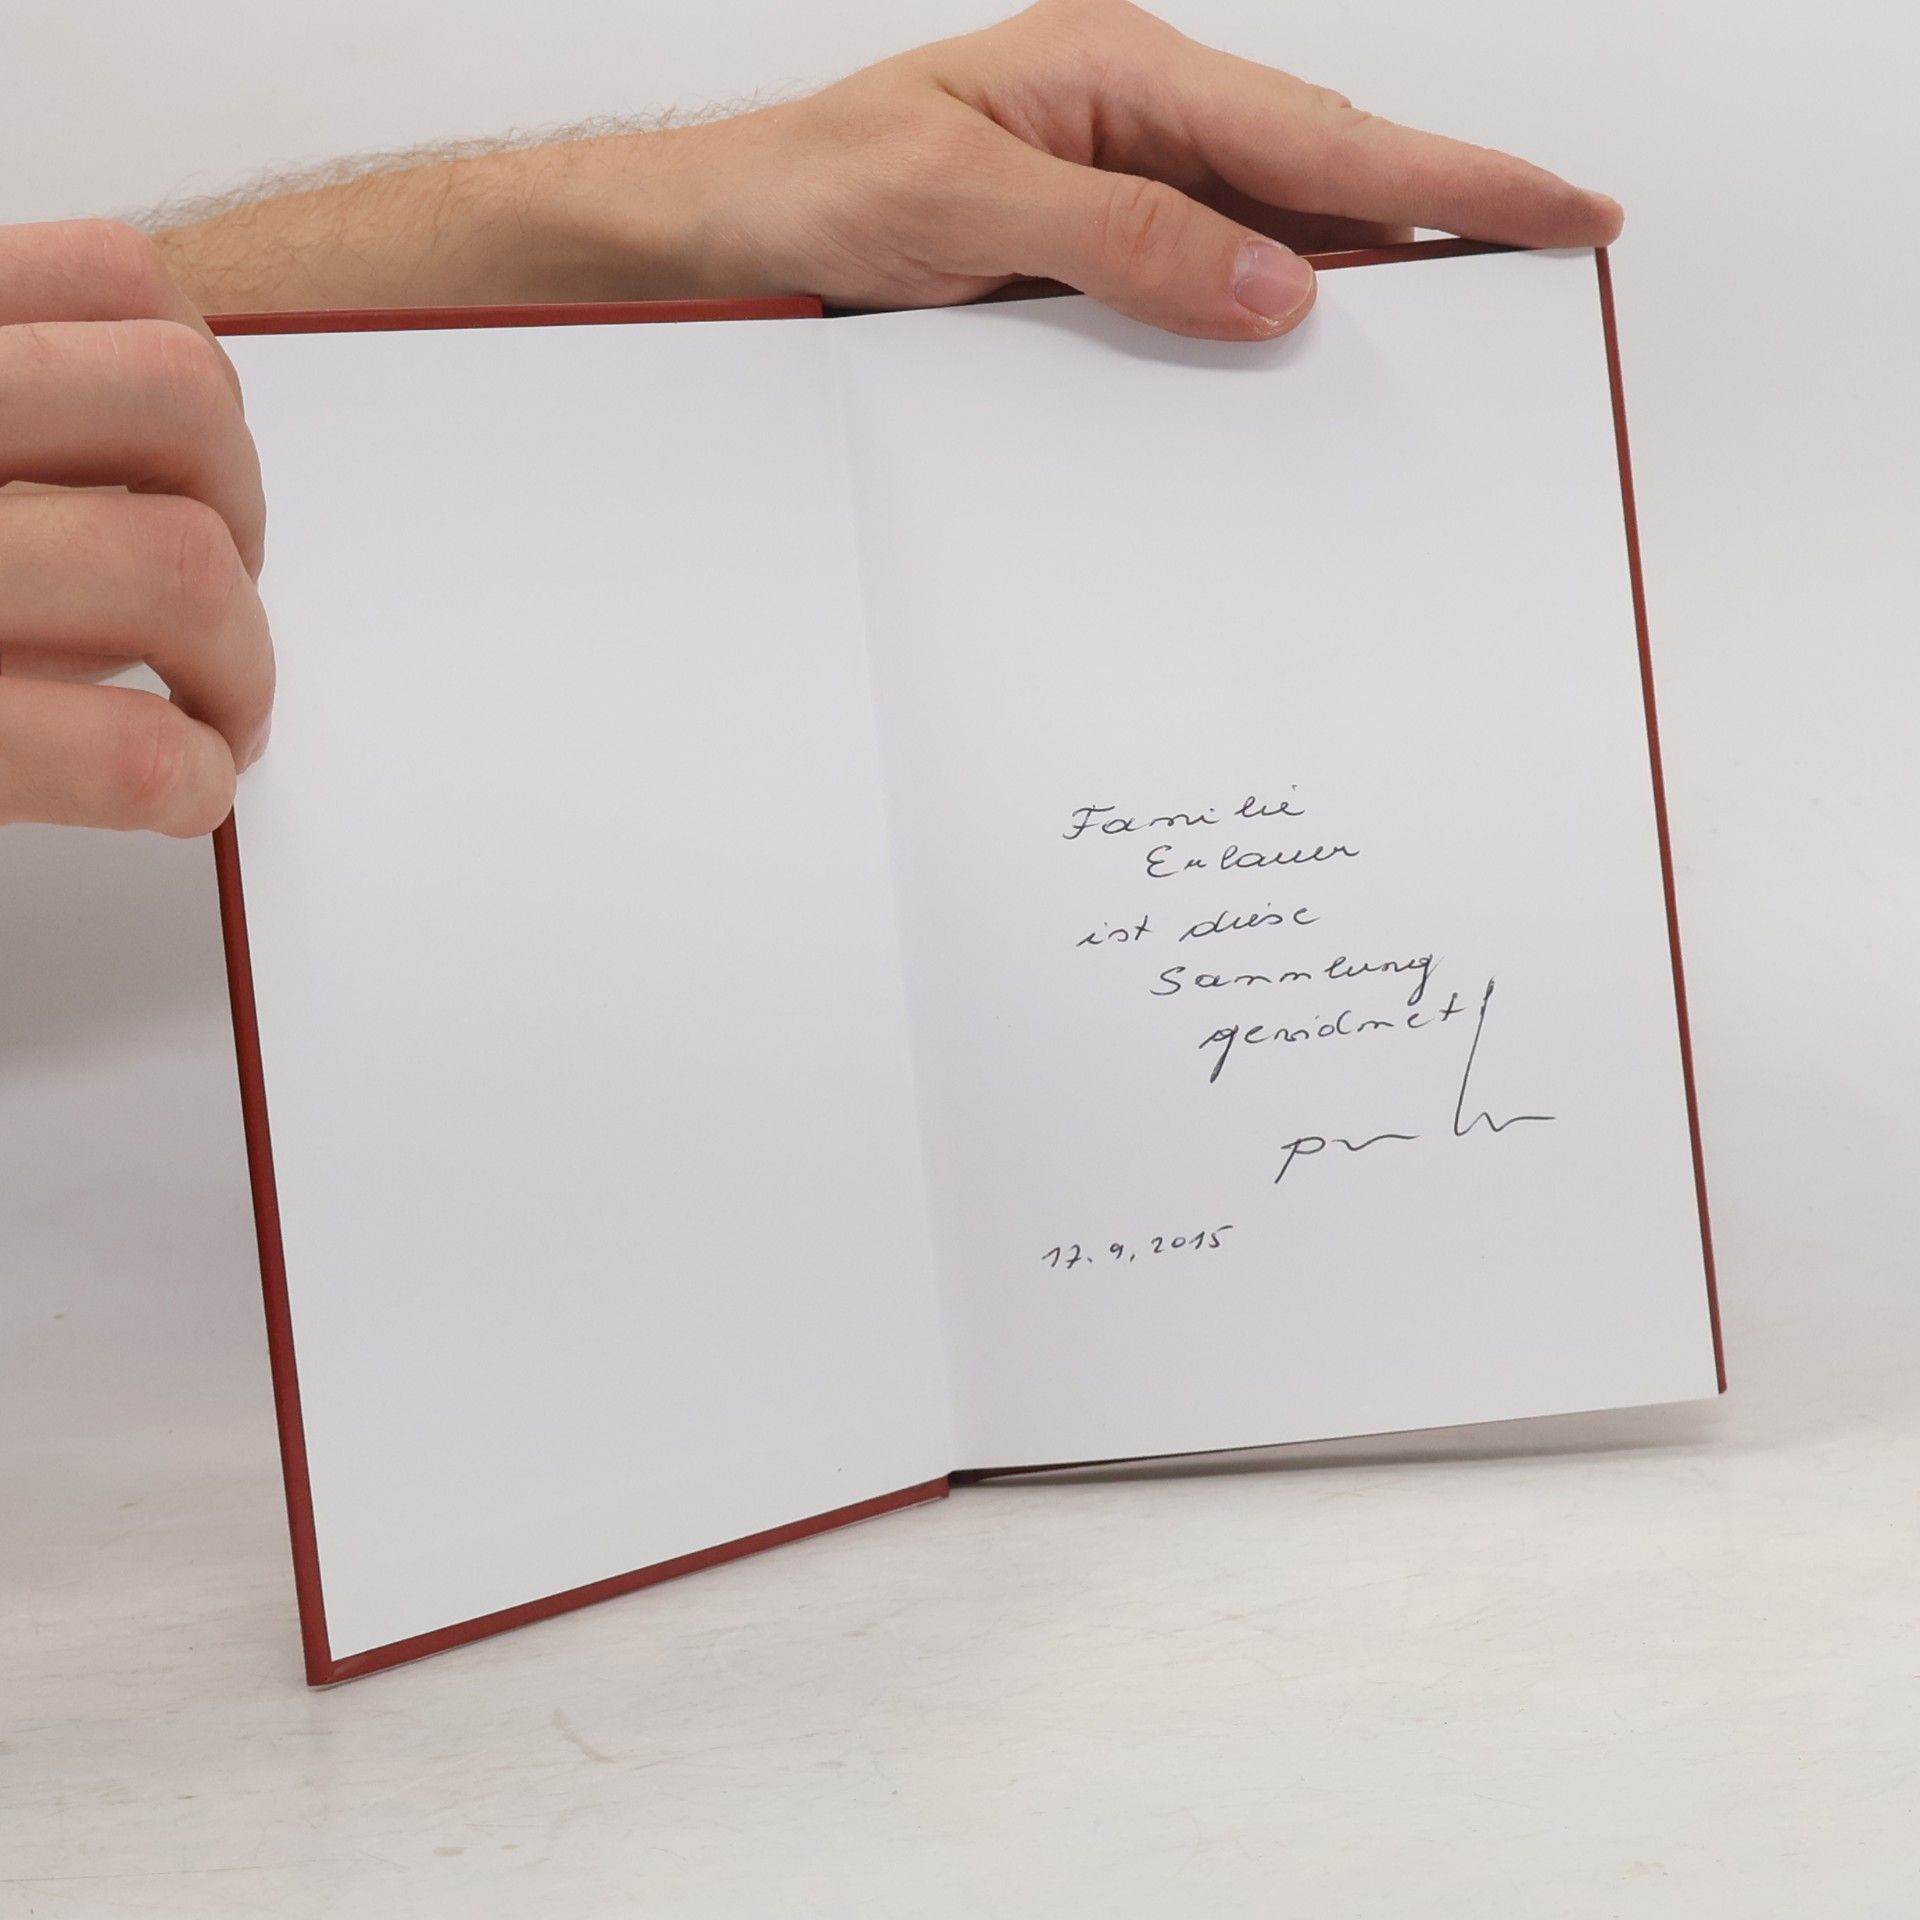 Familie
Erlauer
ist diese
Sammlung
gewidmet!
17.9.2015